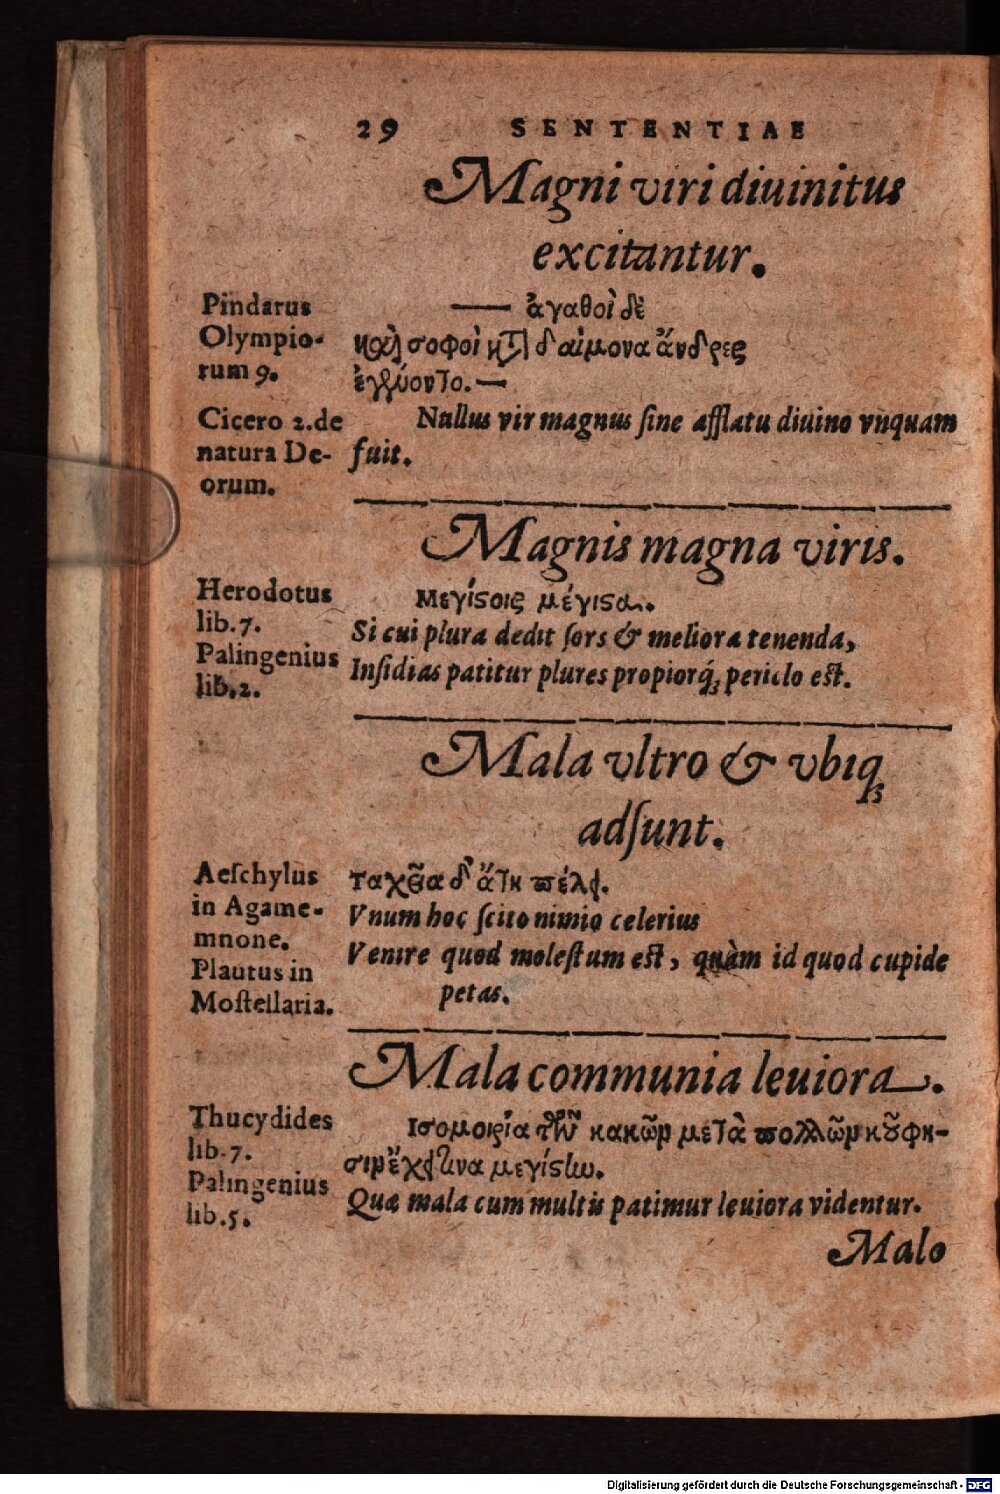 29 SENTENTIAE
Magni viri diuinitus
excitantur.
Pindarus
Olympio-
rum 9.
— ἀγαθοὶ δὲ
καὶ σοφοὶ κατὰ δαίμονα ἄνδρες
ἐγένοντο.—
Cicero 2. de
natura De-
orum.
Nullus vir magnus ſine afflatu diuino vnquam
fuit.
Magnis magna viris.
Herodotus
lib. 7.
Palingenius
lib. 2.
Μεγίϛοις μέγιϛα.
Si cui plura dedit ſors & meliora tenenda,
Inſidias patitur plures propiorq́; periclo eſt.
Mala vltro & vbiq;
adſunt.
Aeſchylus
in Agame-
mnone.
Plautus in
Moſtellaria.
ταχεῖα δ' ἄτη πέλει.
Vnum hoc ſcito nimio celerius
Venire quod moleſtum eſt, quàm id quod cupide
petas.
Mala communia leuiora.
Thucydides
lib. 7.
Palingenius
lib. 5.
Ισομοιρία τῶν κακῶν μετὰ πολλῶν κούφη-
σιν ἔχει τινα μεγίϛω.
Quæ mala cum multis patimur leuiora videntur.
Malo
Digitalisierung gefördert durch die Deutsche Forschungsgemeinschaft - DFG